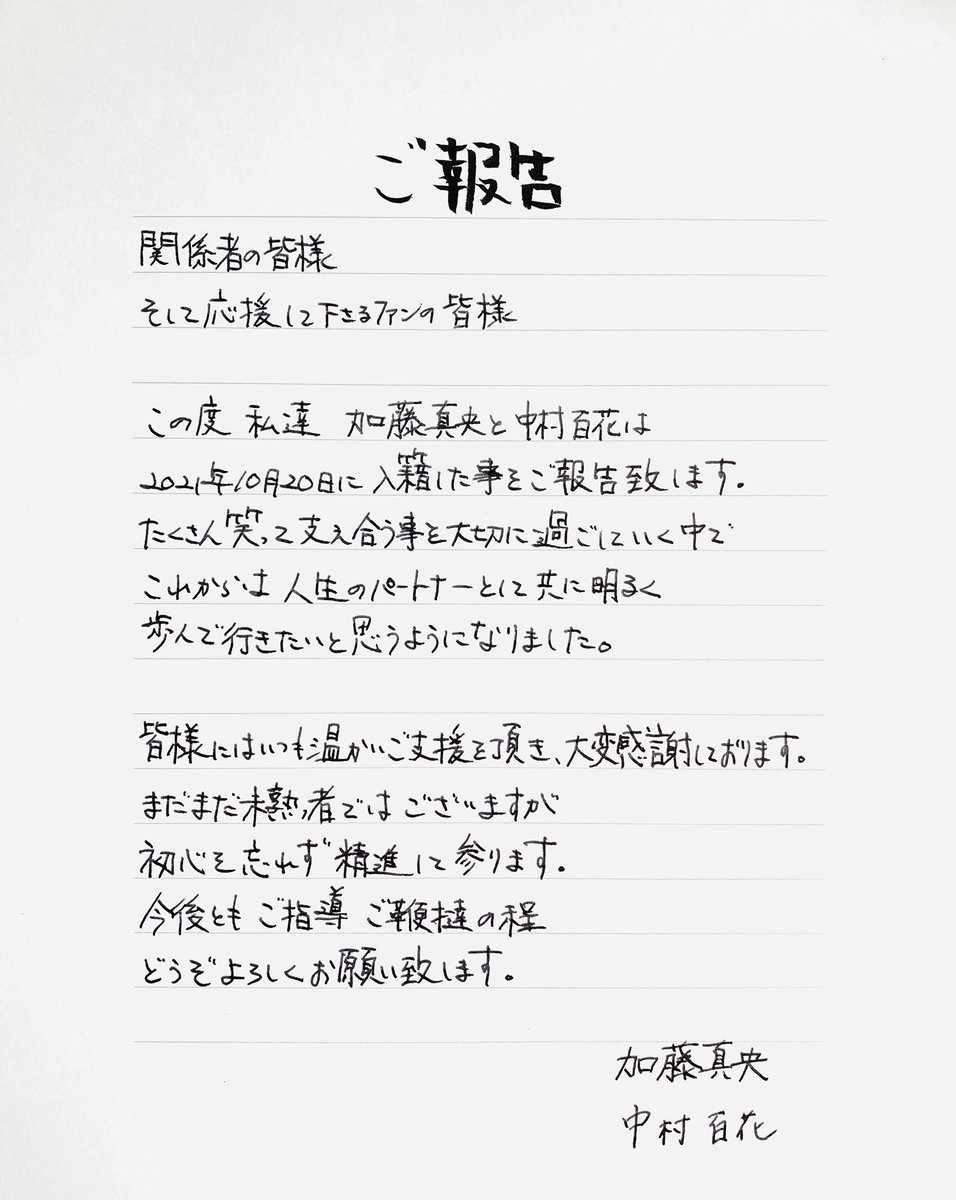 ご報告
関係者の皆様
そして応援して下さるファンの皆様
この度 私達 加藤真央と中村百花は
2021年10月20日に入籍した事をご報告致します。
たくさん笑って支え合う事を大切に過ごしていく中で
これからは人生のパートナーとして共に明るく
歩んで行きたいと思うようになりました。
皆様にはいつも温かいご支援を頂き、大変感謝しております。
まだまだ未熟者ではございますが
初心を忘れず精進して参ります。
今後とも ご指導 ご鞭撻の程
どうぞよろしくお願い致します。
加藤真央
中村百花